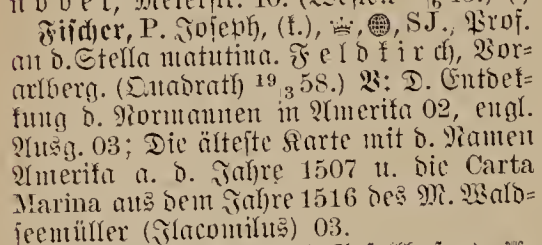 Fischer, P. Joseph, (k.), SJ., Prof.
an d. Stella matutina. Feldkirch, Vor=
arlberg. (Quadrath 19/3 58.) V: D. Entdek=
kung d. Normannen in Amerika 02, engl.
Ausg. 03; Die älteste Karte mit d. Namen
Amerika a. d. Jahre 1507 u. die Carta
Marina aus dem Jahre 1516 des M. Wald=
seemüller (Ilacomilus) 03.